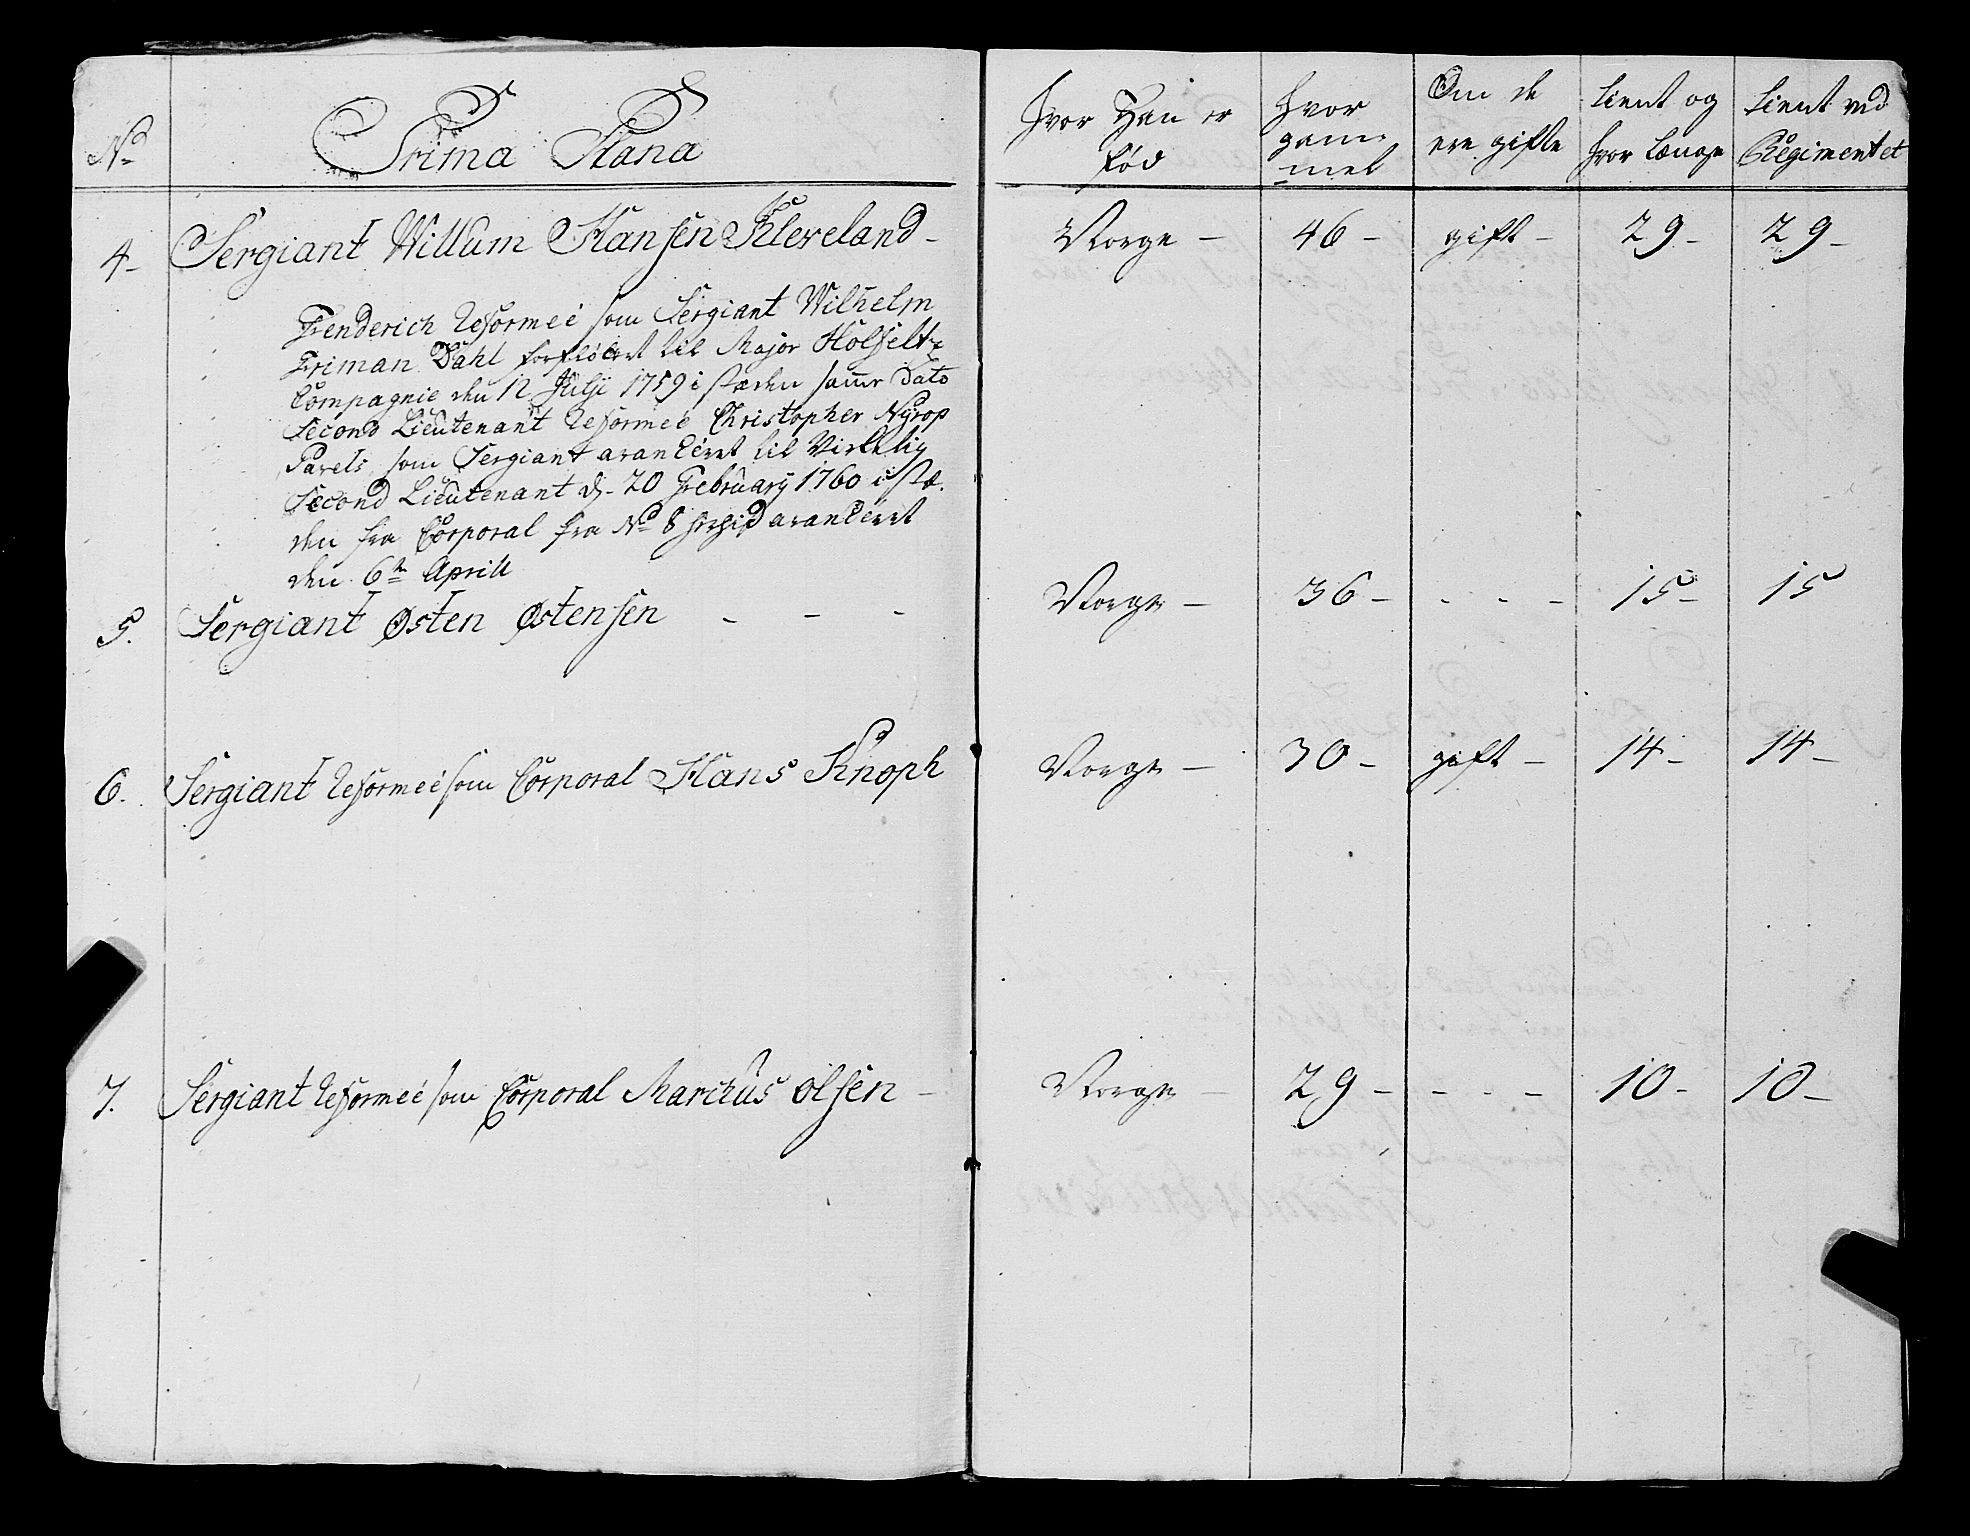 No
Prima Plana
hvor Han er
fød
hvor
gam-
mel
Om de
ere gifte
tient og
hvor Længe
tient ved
Regimentet
4- Sergiant Willum Hansen Kleveland - Norge - 46 - gift - 29 - 29 -
Fenderich Reformeé som Sergiant Wilhelm
Friman Dahl forfløttet til Major Holfeltz
Compagnie den 12 Julji 1759 i stæden samme Dato
Second Lieutenant Reformeé Christopher Nyrop
Parels som Sergiant avanceret til Virkelig
Second Lieutenant d. 20 February 1760 i stæ.
den fra Corporal fra No 8 avanceret
den 6te Aprill
5. Sergiant Østen Østensen - - - Norge - 36 - - - - 15 - 15
6. Sergiant Reformeé som Corporal Hans Knoph Norge - 30 - gift - 14 - 14 -
7. Sergiant Reformeé som Corporal Marchus olsen - Norge - 29 - - - - 10 - 10 -